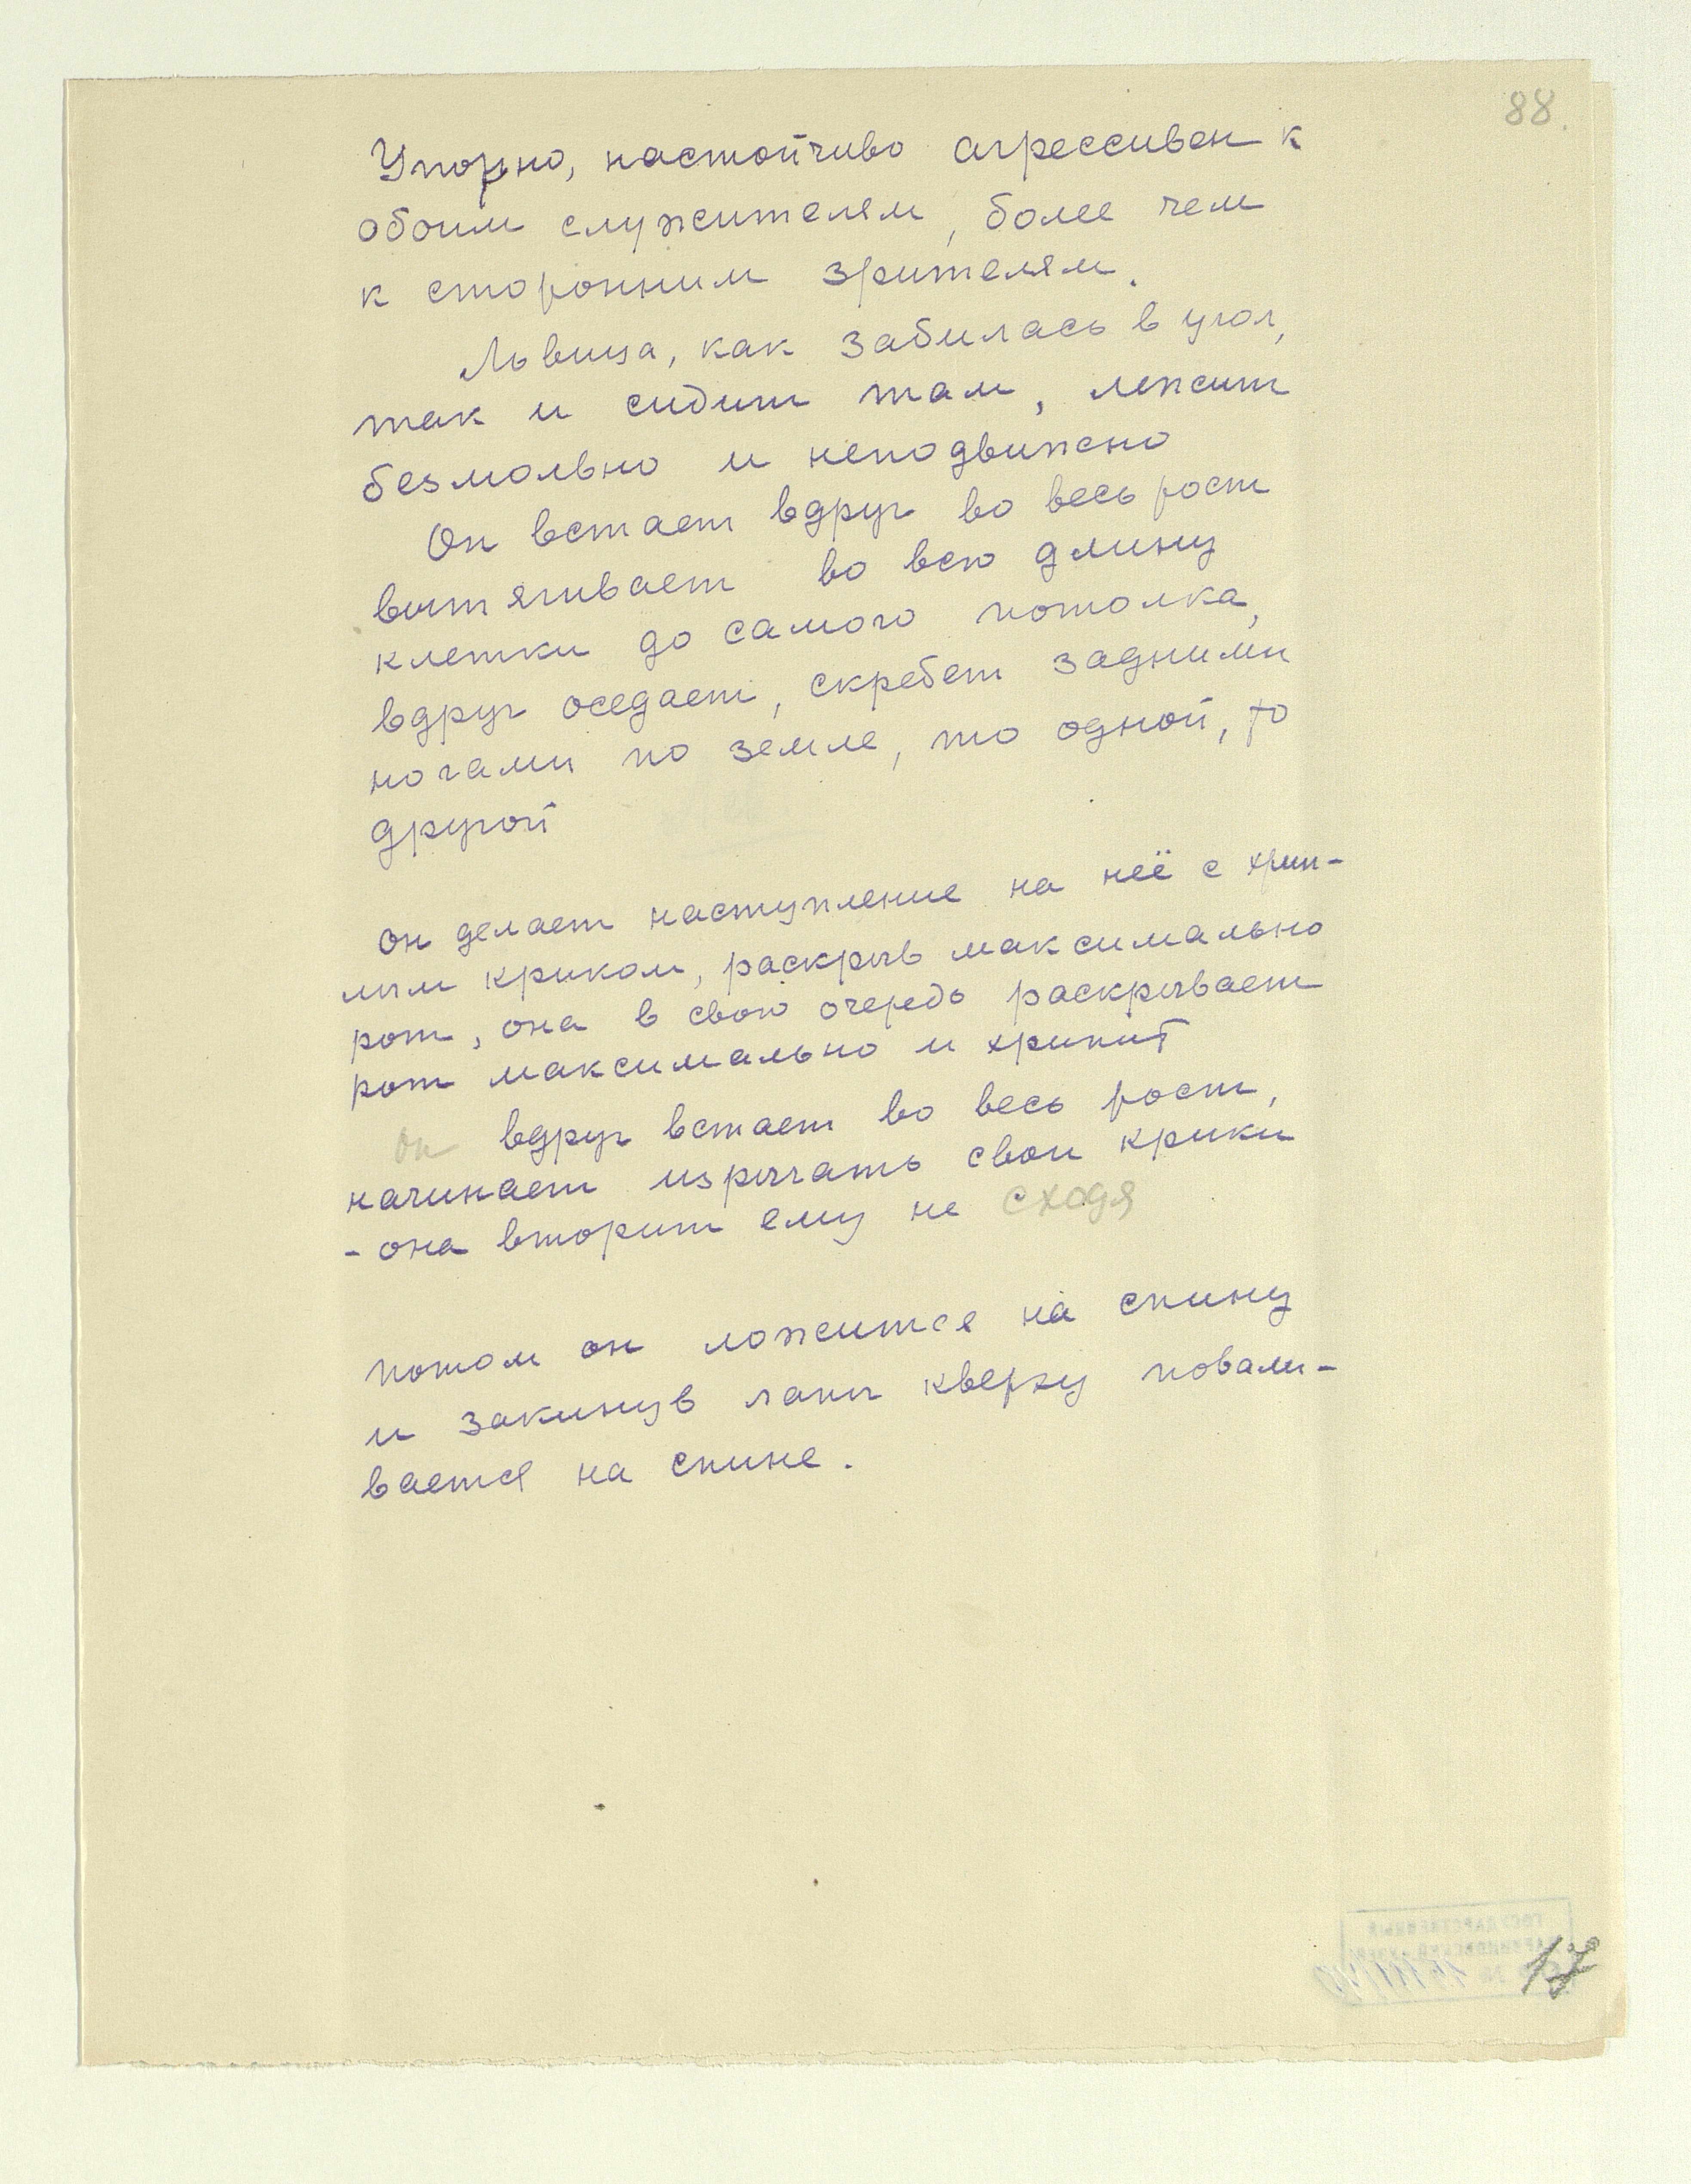 88.
Упорно, настойчиво агрессивен к
обоим служителям, более чем
к сторонним зрителям.
Львица, как забилась в угол,
так и сидит там, лежит
безмолвно и неподвижно
Он встает вдруг во весь рост
вытягивает во всю длину
клетки до самого потолка,
вдруг оседает, скребет задними
ногами по земле, то одной, то
другой
Он делает наступление на неё с хрип-
лым криком, раскрыв максимально
рот, она в свою очередь раскрывает
рот максимально и хрипит
Он вдруг встает во весь рост,
начинает изрыгать свои крики
- она вторит ему не сходя
потом он ложится на спину
и закинув лапы кверху повали-
вается на спине.
ГОСУДАРСТВЕННЫЙ
ДАРВИНОВСКИЙ МУЗЕЙ
17